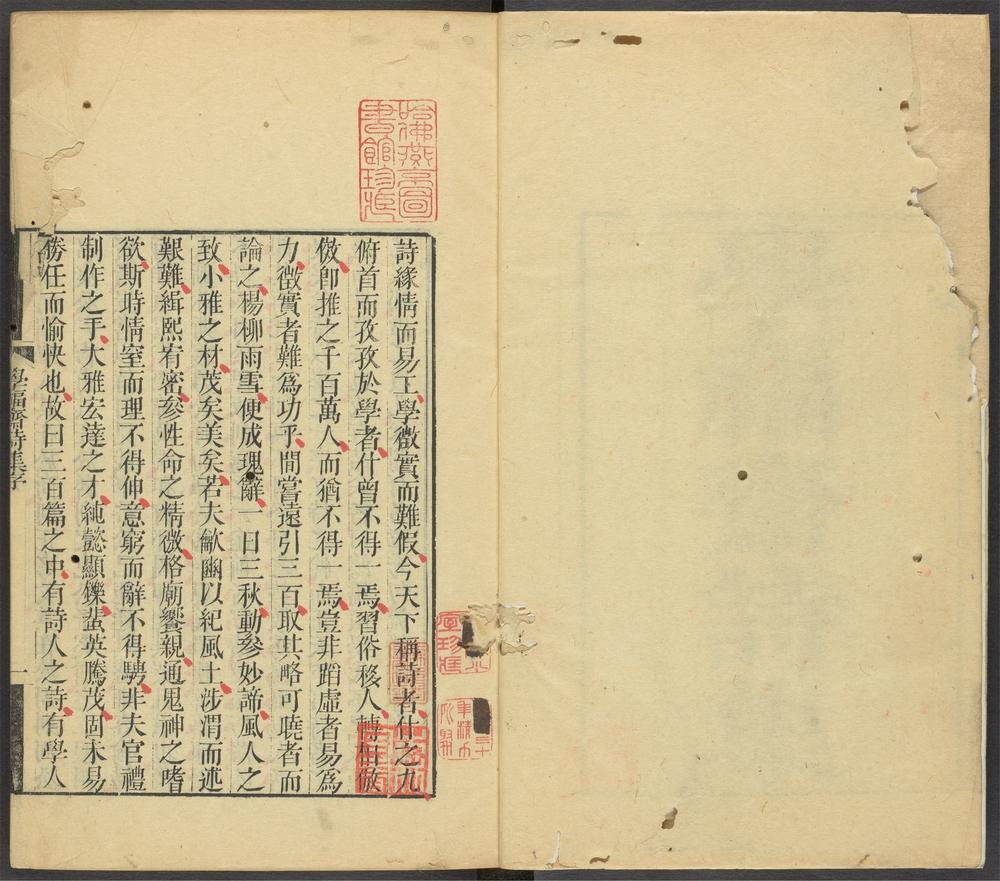 詩緣情而易工學徵實而難假今天下稱詩者什之九
俯首而孜孜於學者什曾不得一焉習俗移人轉相倣
倣卽推之千百萬人而猶不得一焉豈非蹈虛者易爲
力徵實者難爲功乎間嘗遠引三百取其略可曉者而
論之楊柳雨雪便成瑰辭一日三秋動參妙諦風人之
致小雅之材茂矣美矣若夫龡豳以紀風土涉渭而述
艱難緝熙宥密參性命之精微格廟饗親通鬼神之嗜
欲斯時情窒而理不得伸意窮而辭不得騁非夫官禮
制作之手大雅宏達之才純懿顯鑠蜚英騰茂固未易
勝任而愉快也故曰三百篇之中有詩人之詩有學人
學福齋詩集序
一
哈佛燕京圖書館珍藏